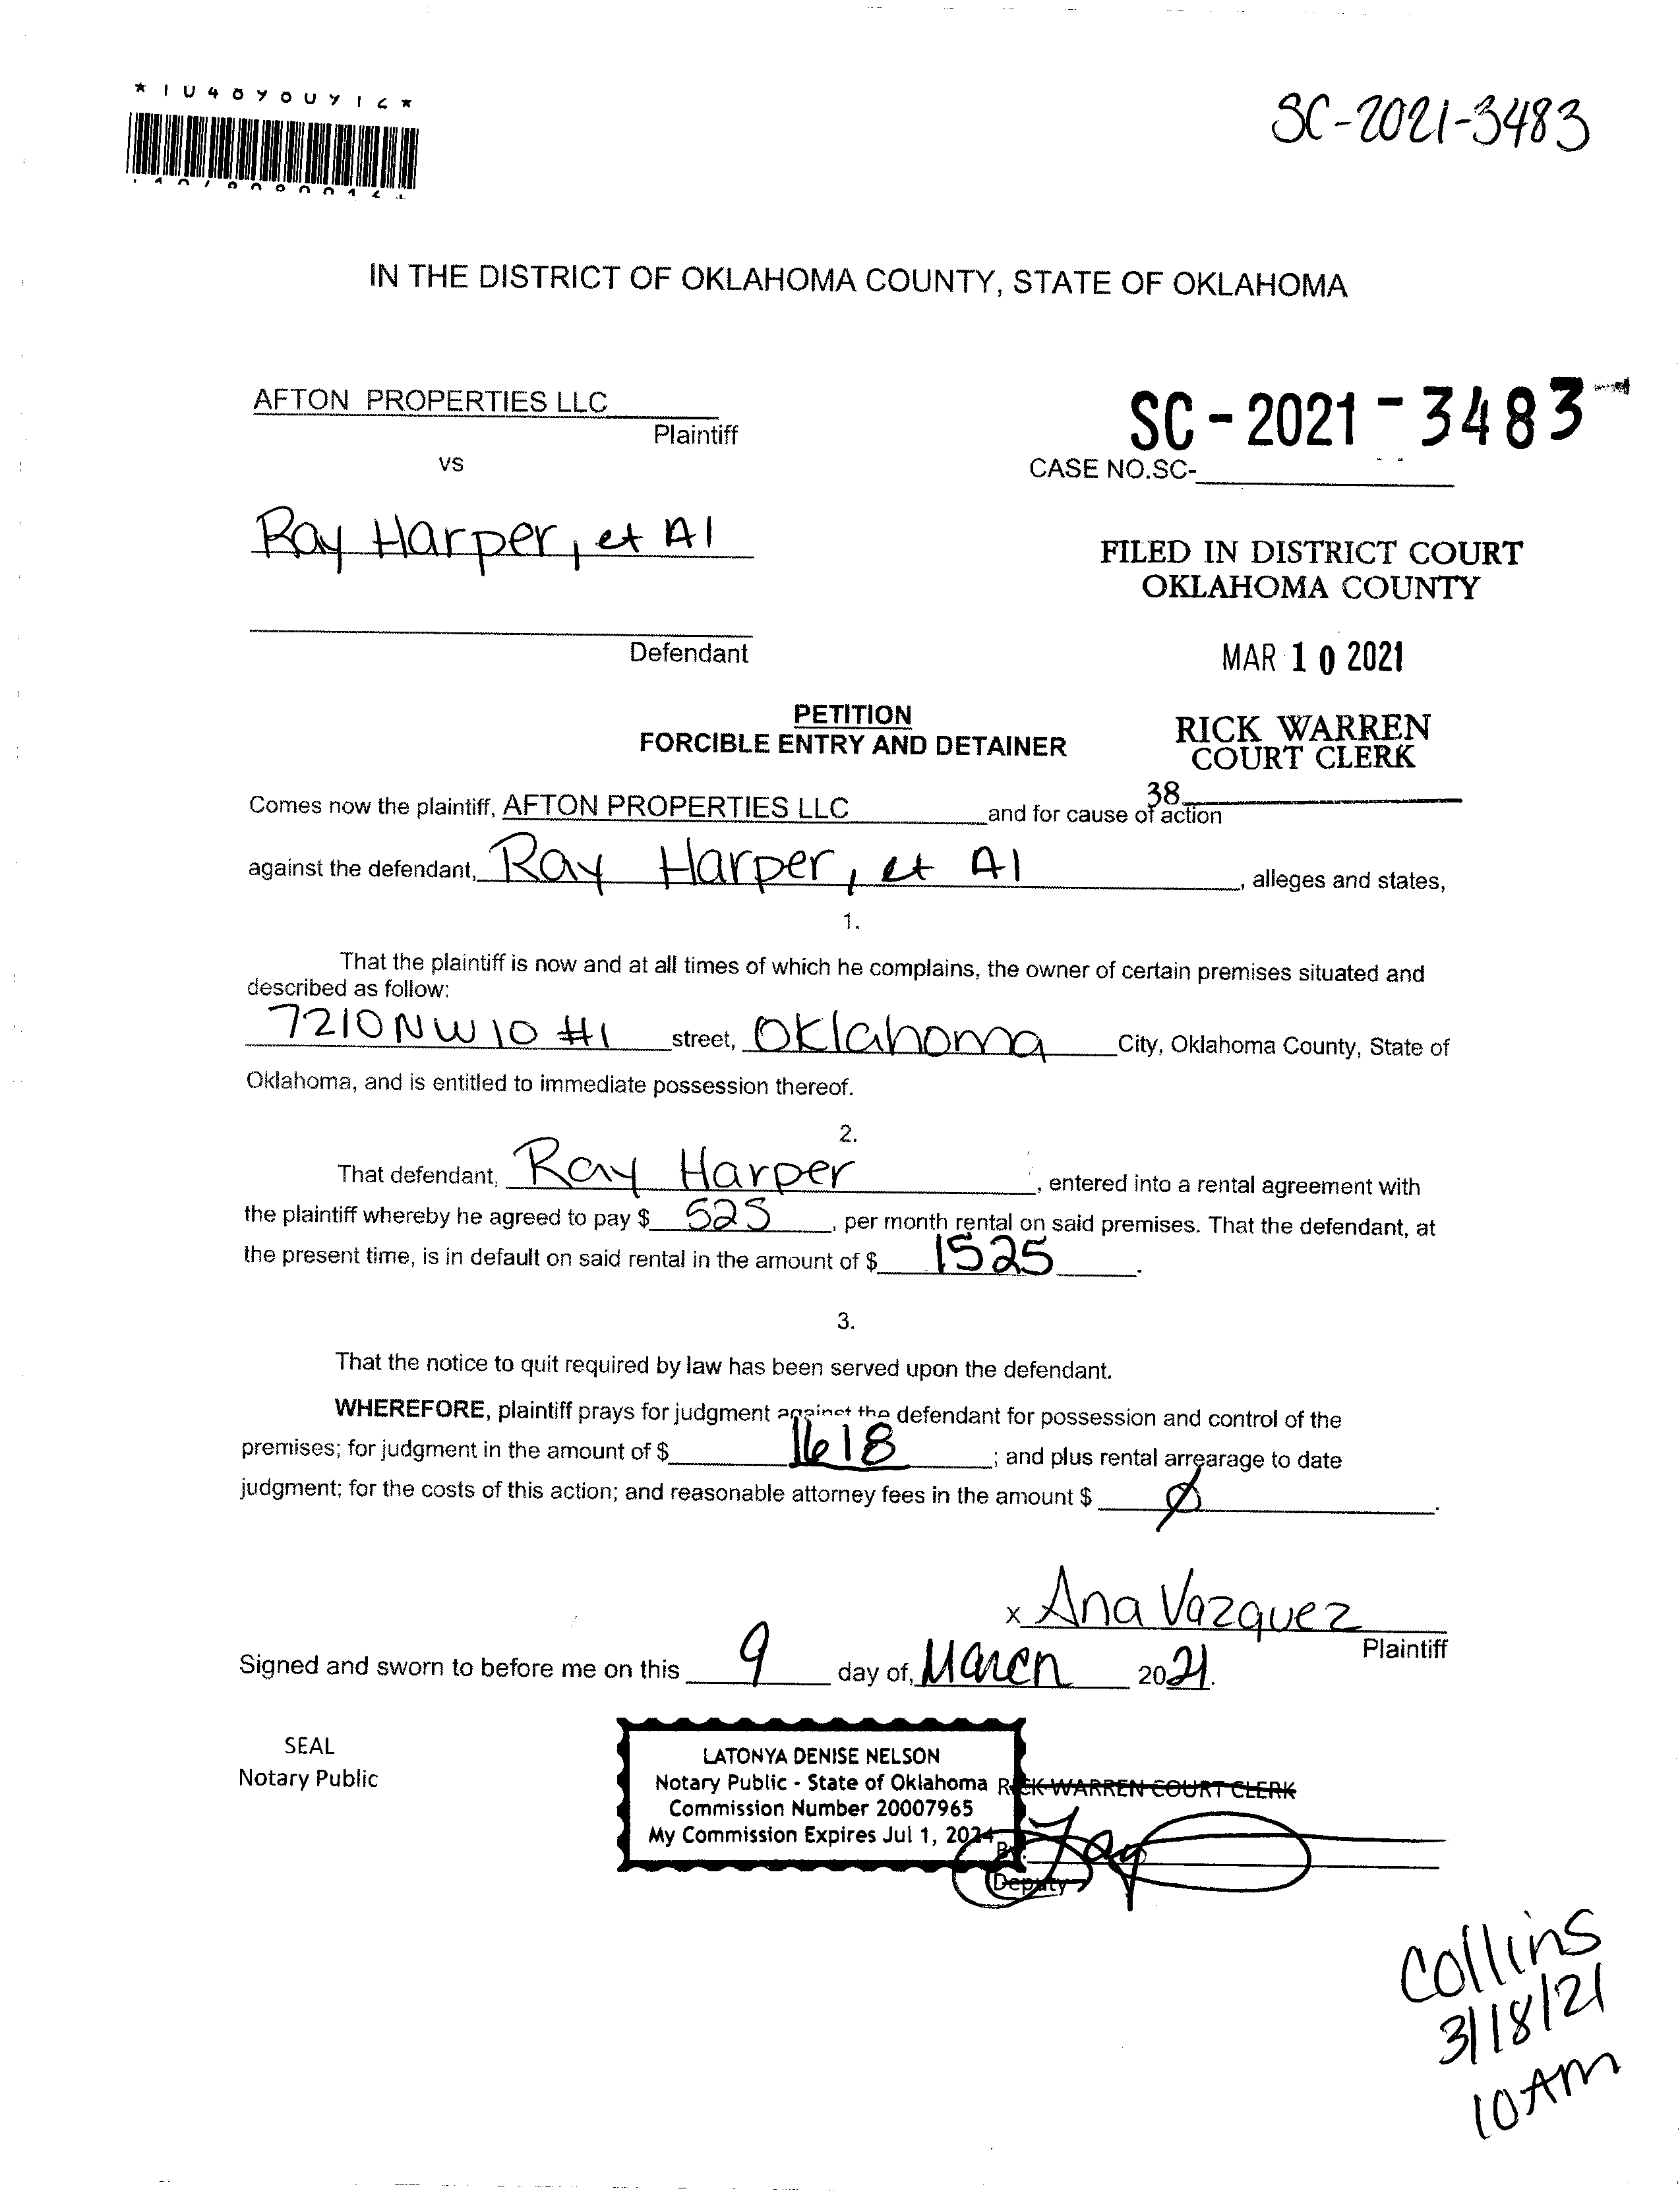 SC-2021-3483
IN THE DISTRICT OF OKLAHOMA COUNTY, STATE OF OKLAHOMA
AFTON PROPERTIES LLC
Plaintiff
vs
SC-2021-3483
CASE NO.SC-
Ray Harper, et Al
FILED IN DISTRICT COURT
OKLAHOMA COUNTY
Defendant
MAR 10 2021
PETITION
FORCIBLE ENTRY AND DETAINER
RICK WARREN
COURT CLERK
38
Comes now the plaintiff, AFTON PROPERTIES LLC and for cause of action
against the defendant, Ray Harper, et Al, alleges and states,
1.
That the plaintiff is now and at all times of which he complains, the owner of certain premises situated and
described as follow:
7210 NW 10 #1 street, Oklahoma City, Oklahoma County, State of
Oklahoma, and is entitled to immediate possession thereof.
2.
That defendant, Ray Harper, entered into a rental agreement with
the plaintiff whereby he agreed to pay $ 525, per month rental on said premises. That the defendant, at
the present time, is in default on said rental in the amount of $ 1525.
3.
That the notice to quit required by law has been served upon the defendant.
WHEREFORE, plaintiff prays for judgment against the defendant for possession and control of the
premises; for judgment in the amount of $ 1618; and plus rental arrearage to date
judgment; for the costs of this action; and reasonable attorney fees in the amount $ Ø.
x Ana Vazquez
Plaintiff
Signed and sworn to before me on this 9 day of, March 2021.
SEAL
Notary Public
LATONYA DENISE NELSON
Notary Public - State of Oklahoma
Commission Number 20007965
My Commission Expires Jul 1, 2024
RICK WARREN COURT CLERK
By:
Deputy
Collins
3/18/21
10 AM